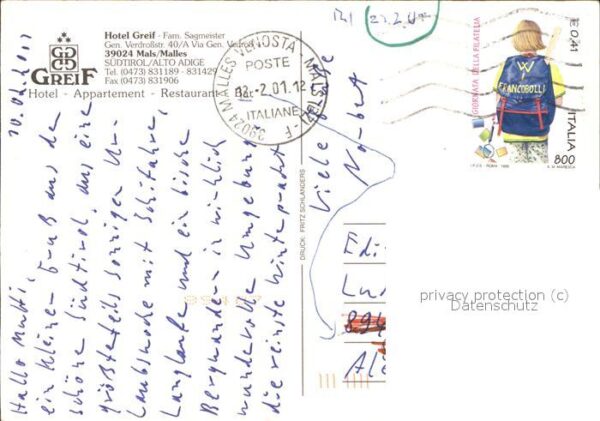 Hotel Greif - Fam. Sagmeister
Gen. Verdroßstr. 40/A Via Gen. Verdroß
39024 Mals/Malles
SÜDTIROL/ALTO ADIGE
Tel. (0473) 831189 - 831429
Fax (0473) 831906
GREIF
Hotel - Appartement - Restaurant
39024 MALLES VENOSTA - MALS
POSTE
-2.01.12
ITALIANE
GIORNATA DELLA FILATELIA
€ 0,41
W
FRANCOBOLLI
ITALIA
800
Hallo Mutti,
ein kleiner Gruß aus dem
schönen Südtirol, aus einer
größtenteils sonnigen Ur-
laubswoche mit Schifahren,
Langlaufen und ein bisschen
Bergwandern in wirklich
wundervoller Umgebung
die reinste Winterpracht
Viele Grüße
Norbert
DRUCK: FRITZ SCHLANDERS
Edi
Lu
894
privacy protection (c)
Datenschutz